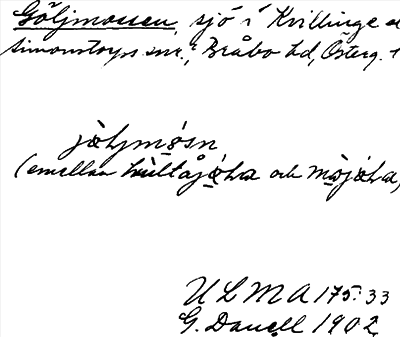 Göljmossen, sjö i Kvillinge o
Simonstorps snr, Bråbo hd, Österg. l
jøljmósn
(emellan hùltåjø̀ḷa och mòjø̀ḷa)
ULMA 175:33
G. Danell 1902